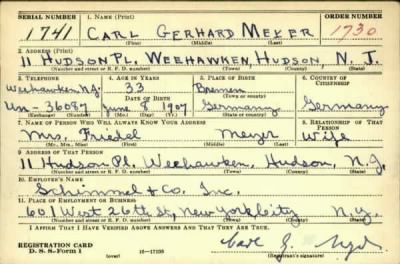 SERIAL NUMBER 1. NAME (Print) ORDER NUMBER
1741 CARL GERHARD MEYER 1730
(First) (Middle) (Last)
2. ADDRESS (Print)
11 HUDSON PL. WEEHAWKEN, HUDSON, N. J.
(Number and street or R. F. D. number) (Town) (County) (State)
3. TELEPHONE 4. AGE IN YEARS 5. PLACE OF BIRTH 6. COUNTRY OF CITIZENSHIP
Weehawken N.J. 33 Bremen
DATE OF BIRTH (Town or county)
Un-36087 June 8 1907 Germany Germany
(Exchange) (Number) (Mo.) (Day) (Yr.) (State or country)
7. NAME OF PERSON WHO WILL ALWAYS KNOW YOUR ADDRESS 8. RELATIONSHIP OF THAT PERSON
Mrs. Friedel Meyer Wife
(Mr., Mrs., Miss) (First) (Middle) (Last)
9. ADDRESS OF THAT PERSON
11 Hudson Pl. Weehawken, Hudson, N.J.
(Number and street or R. F. D. number) (Town) (County) (State)
10. EMPLOYER'S NAME
Schimmel & Co. Inc.
11. PLACE OF EMPLOYMENT OR BUSINESS
601 West 26th St, New York City N.Y.
(Number and street or R. F. D. number) (Town) (County) (State)
I AFFIRM THAT I HAVE VERIFIED ABOVE ANSWERS AND THAT THEY ARE TRUE.
REGISTRATION CARD
D. S. S. Form 1 (over) Carl G.